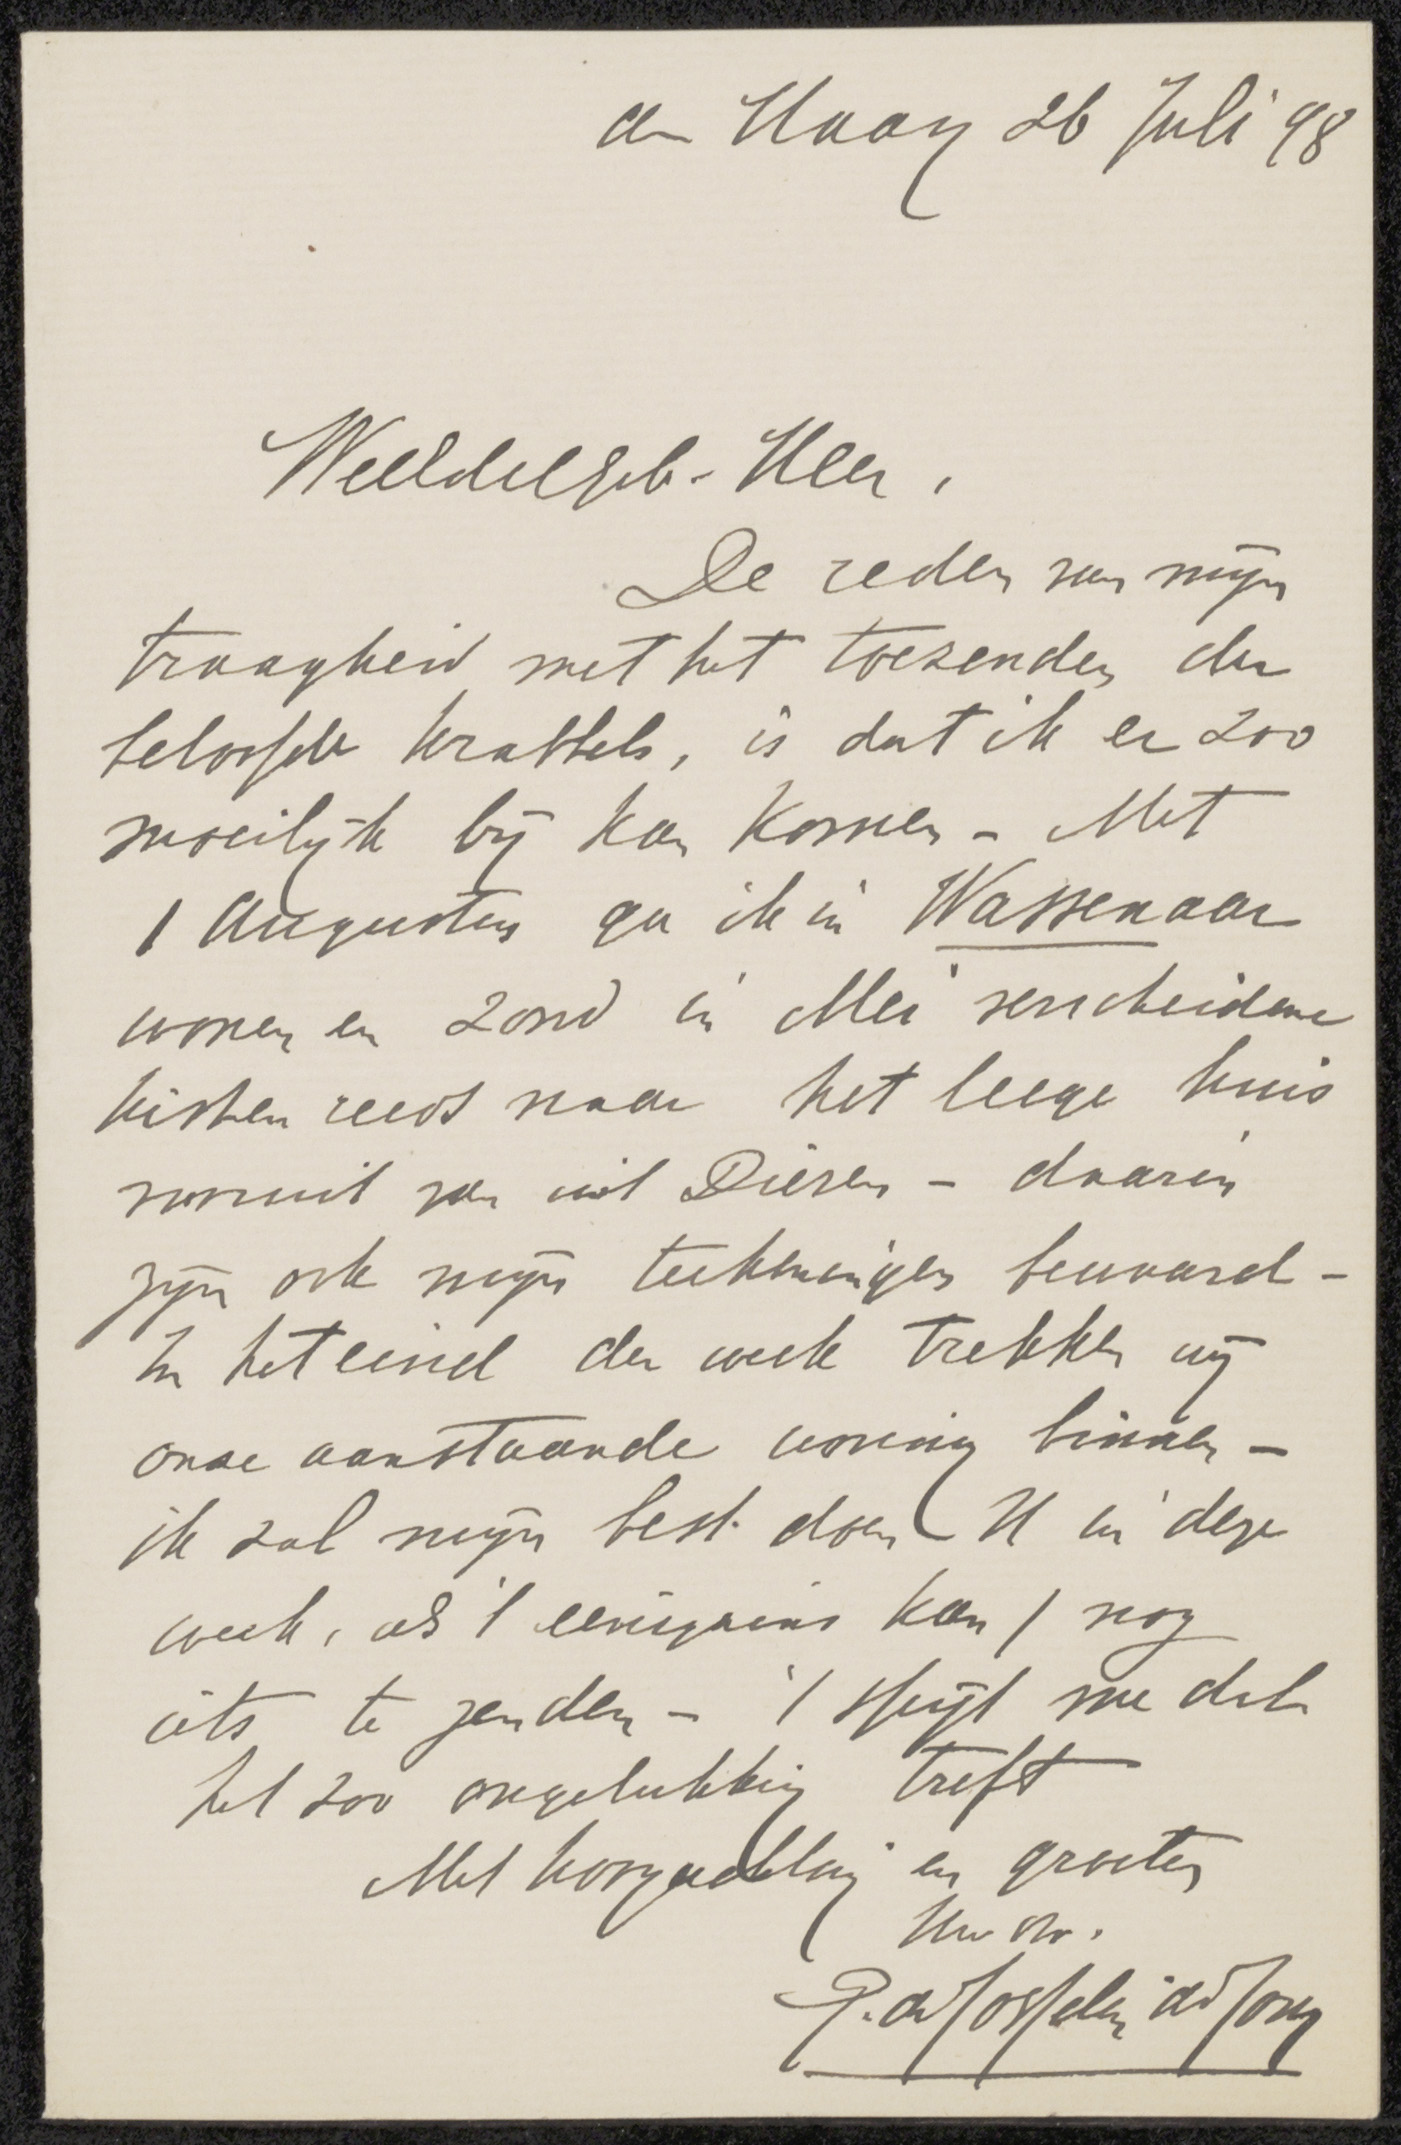 den Haag 26 Juli '98
WelEdelGeb. Heer,
De reden van mijn
traagheid met het toezenden der
beloofde krabbels, is dat ik er zoo
moeilijk bij kan komen - Met
1 Augustus ga ik in Wassenaar
wonen en zond in Mei verscheidene
kisten reeds naar het leege huis
vooruit van uit Diesen - daarin
zijn ook mijn teekeningen bewaard -
In het eind der week trekken wij
onze aanstaande woning binnen -
ik zal mijn best doen U in deze
week, als 't eenigzins kan / nog
iets te zenden - 't spijt me dat
het zoo ongelukkig treft
Met hoogachting en groeten
Uw dr.
P. de Josselin de Jong